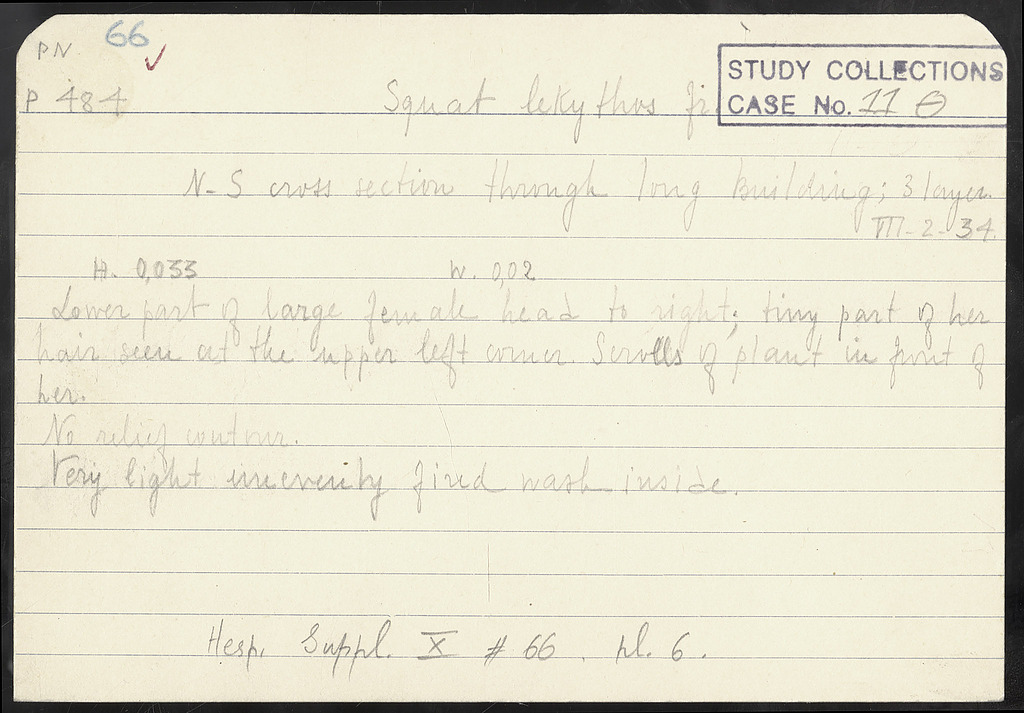 PN. 66 ✓
STUDY COLLECTIONS
P 484 Squat lekythos fr CASE No. 11 θ
N-S cross section through long Building; 3 layer.
VII-2-34.
H. 0,033 W. 0,02
Lower part of large female head to right; tiny part of her
hair seen at the upper left corner. Scrolls of plant in front of
her.
No relief contour.
Very light unevenly fired wash inside.
Hesp. Suppl. X # 66. pl. 6.